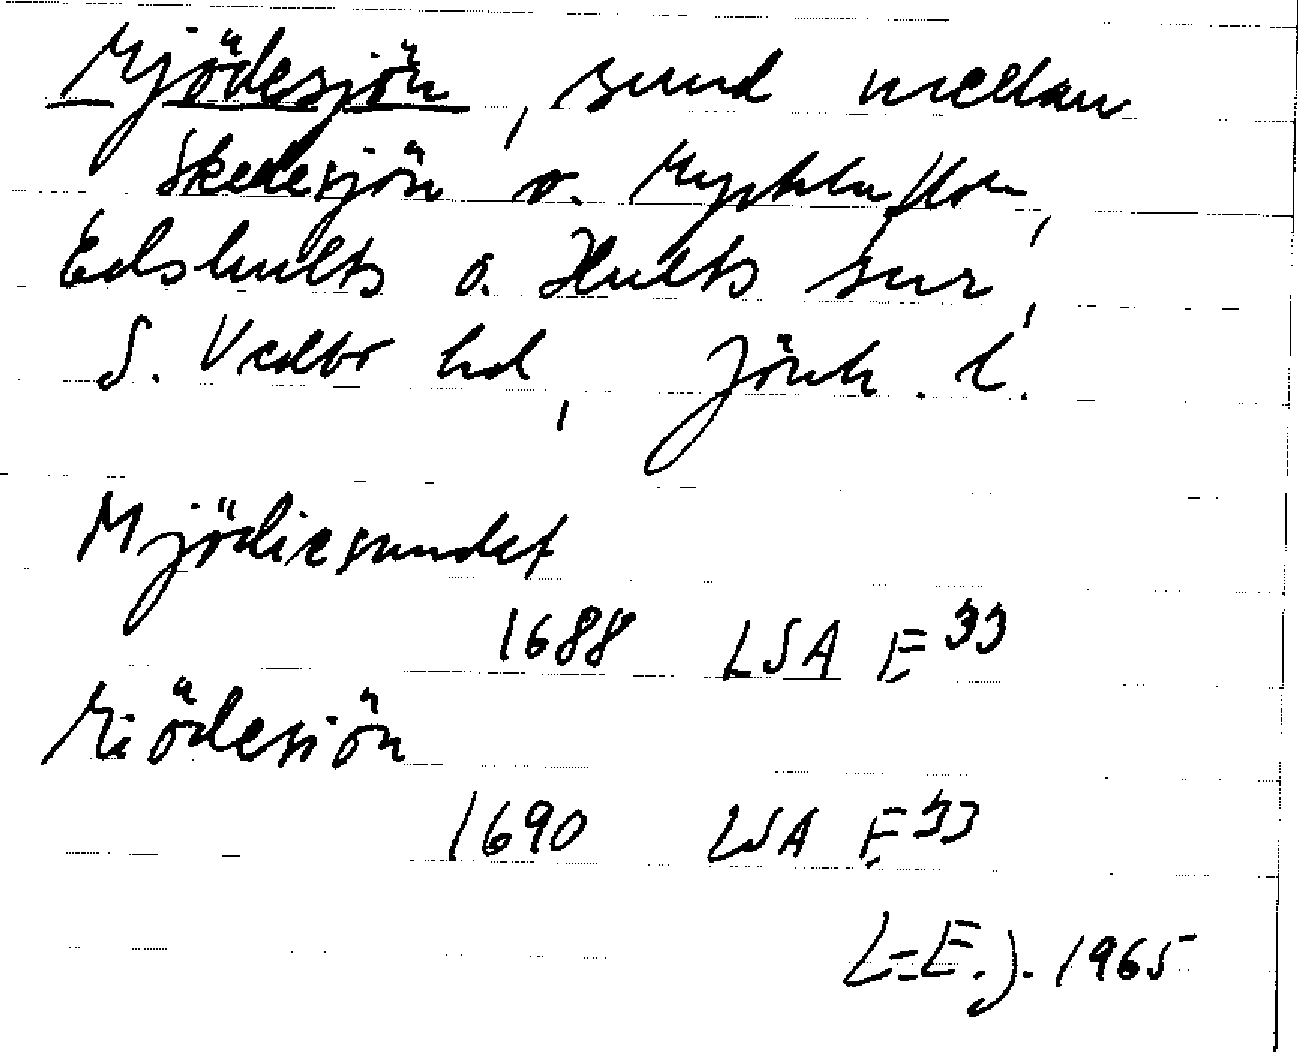 Mjödesjön, sund mellan
Skedesjön o. Mycklaflon,
Edshults o. Hults snr,
S. Vedbo hd, Jönk. l.
Mjödiesundet
1688 LSA E 33
Miödesiön
1690 LSA E 33
L-E. J. 1965